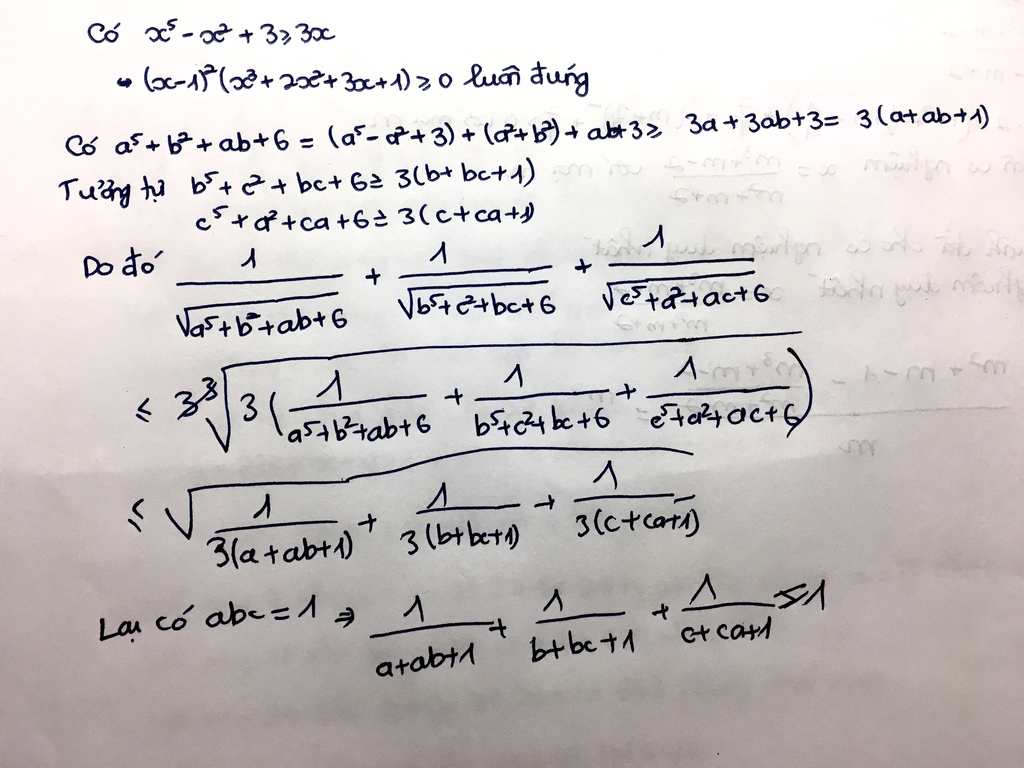 Có x⁵ - x² + 3 ≥ 3x
(x-1)²(x³ + 2x² + 3x + 1) ≥ 0 luôn đúng
Có a⁵ + b² + ab + 6 = (a⁵ - a² + 3) + (a² + b²) + ab + 3 ≥ 3a + 3ab + 3 = 3(a + ab + 1)
Tương tự b⁵ + c² + bc + 6 ≥ 3(b + bc + 1)
c⁵ + a² + ca + 6 ≥ 3(c + ca + 1)
Do đó 1/√(a⁵ + b² + ab + 6) + 1/√(b⁵ + c² + bc + 6) + 1/√(c⁵ + a² + ac + 6)
≤ √(3(1/(a⁵ + b² + ab + 6) + 1/(b⁵ + c² + bc + 6) + 1/(c⁵ + a² + ac + 6)))
≤ √(1/(3(a + ab + 1)) + 1/(3(b + bc + 1)) + 1/(3(c + ca + 1)))
Lại có abc = 1 ⇒ 1/(a + ab + 1) + 1/(b + bc + 1) + 1/(c + ca + 1) ≤ 1